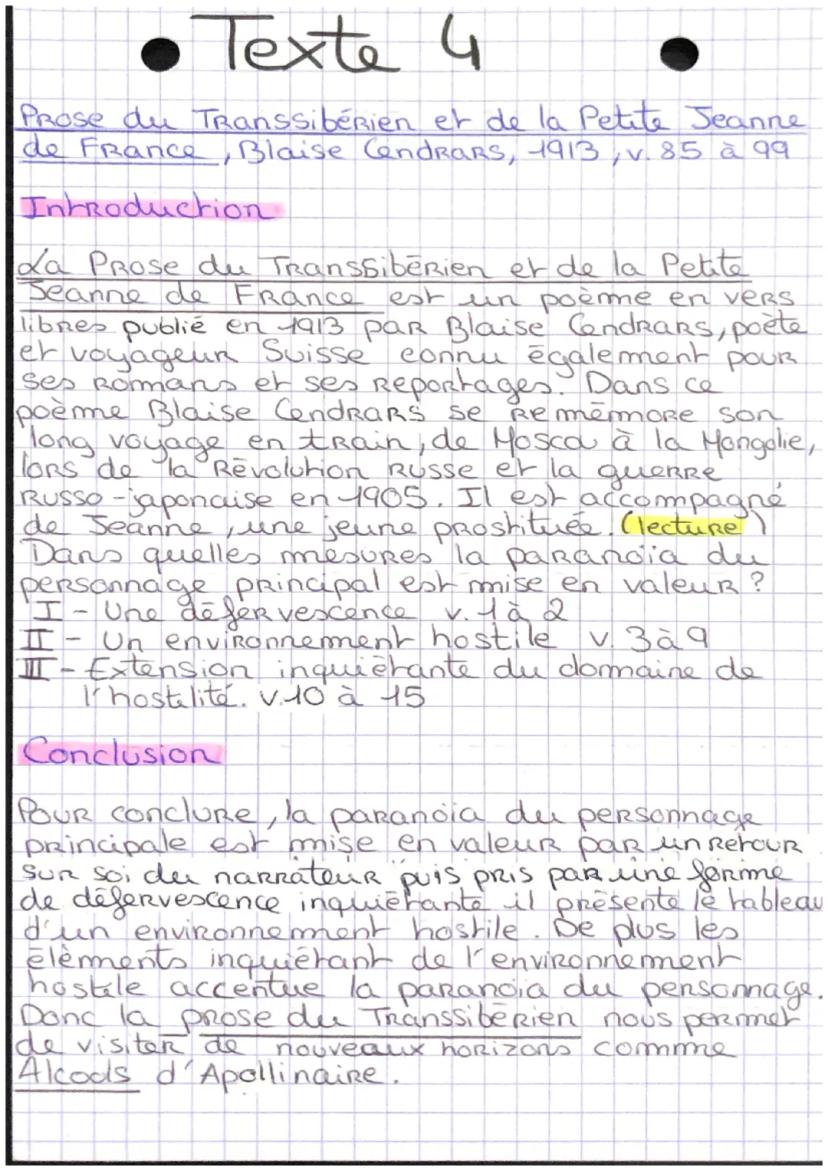 Texte 4
Prose du Transsibérien et de la Petite Jeanne
de France, Blaise Cendrars, 1913, v. 85 à 99
Introduction
La Prose du Transsibérien et de la Petite
Jeanne de France est un poème en vers
libres publié en 1913 par Blaise Cendrars, poète
et voyageur Suisse connu également pour
ses romans et ses reportages. Dans ce
poème Blaise Cendrars se remémore son
long voyage en train, de Moscou à la Mongolie,
lors de la Révolution Russe et la guerre
Russo-japonaise en 1905. Il est accompagné
de Jeanne, une jeune prostituée. (lecture)
Dans quelles mesures la paranoïa du
personnage principal est mise en valeur ?
I - Une défervescence v. 1 à 2
II - Un environnement hostile v. 3 à 9
III - Extension inquiétante du domaine de
l'hostilité. v.10 à 15
Conclusion
Pour conclure, la paranoïa du personnage
principale est mise en valeur par un retour
sur soi du narrateur puis pris par une forme
de défervescence inquiétante il présente le tableau
d'un environnement hostile. De plus les
éléments inquiétant de l'environnement
hostile accentue la paranoïa du personnage.
Donc la prose du Transsibérien nous permet
de visiter de nouveaux horizons comme
Alcools d'Apollinaire.